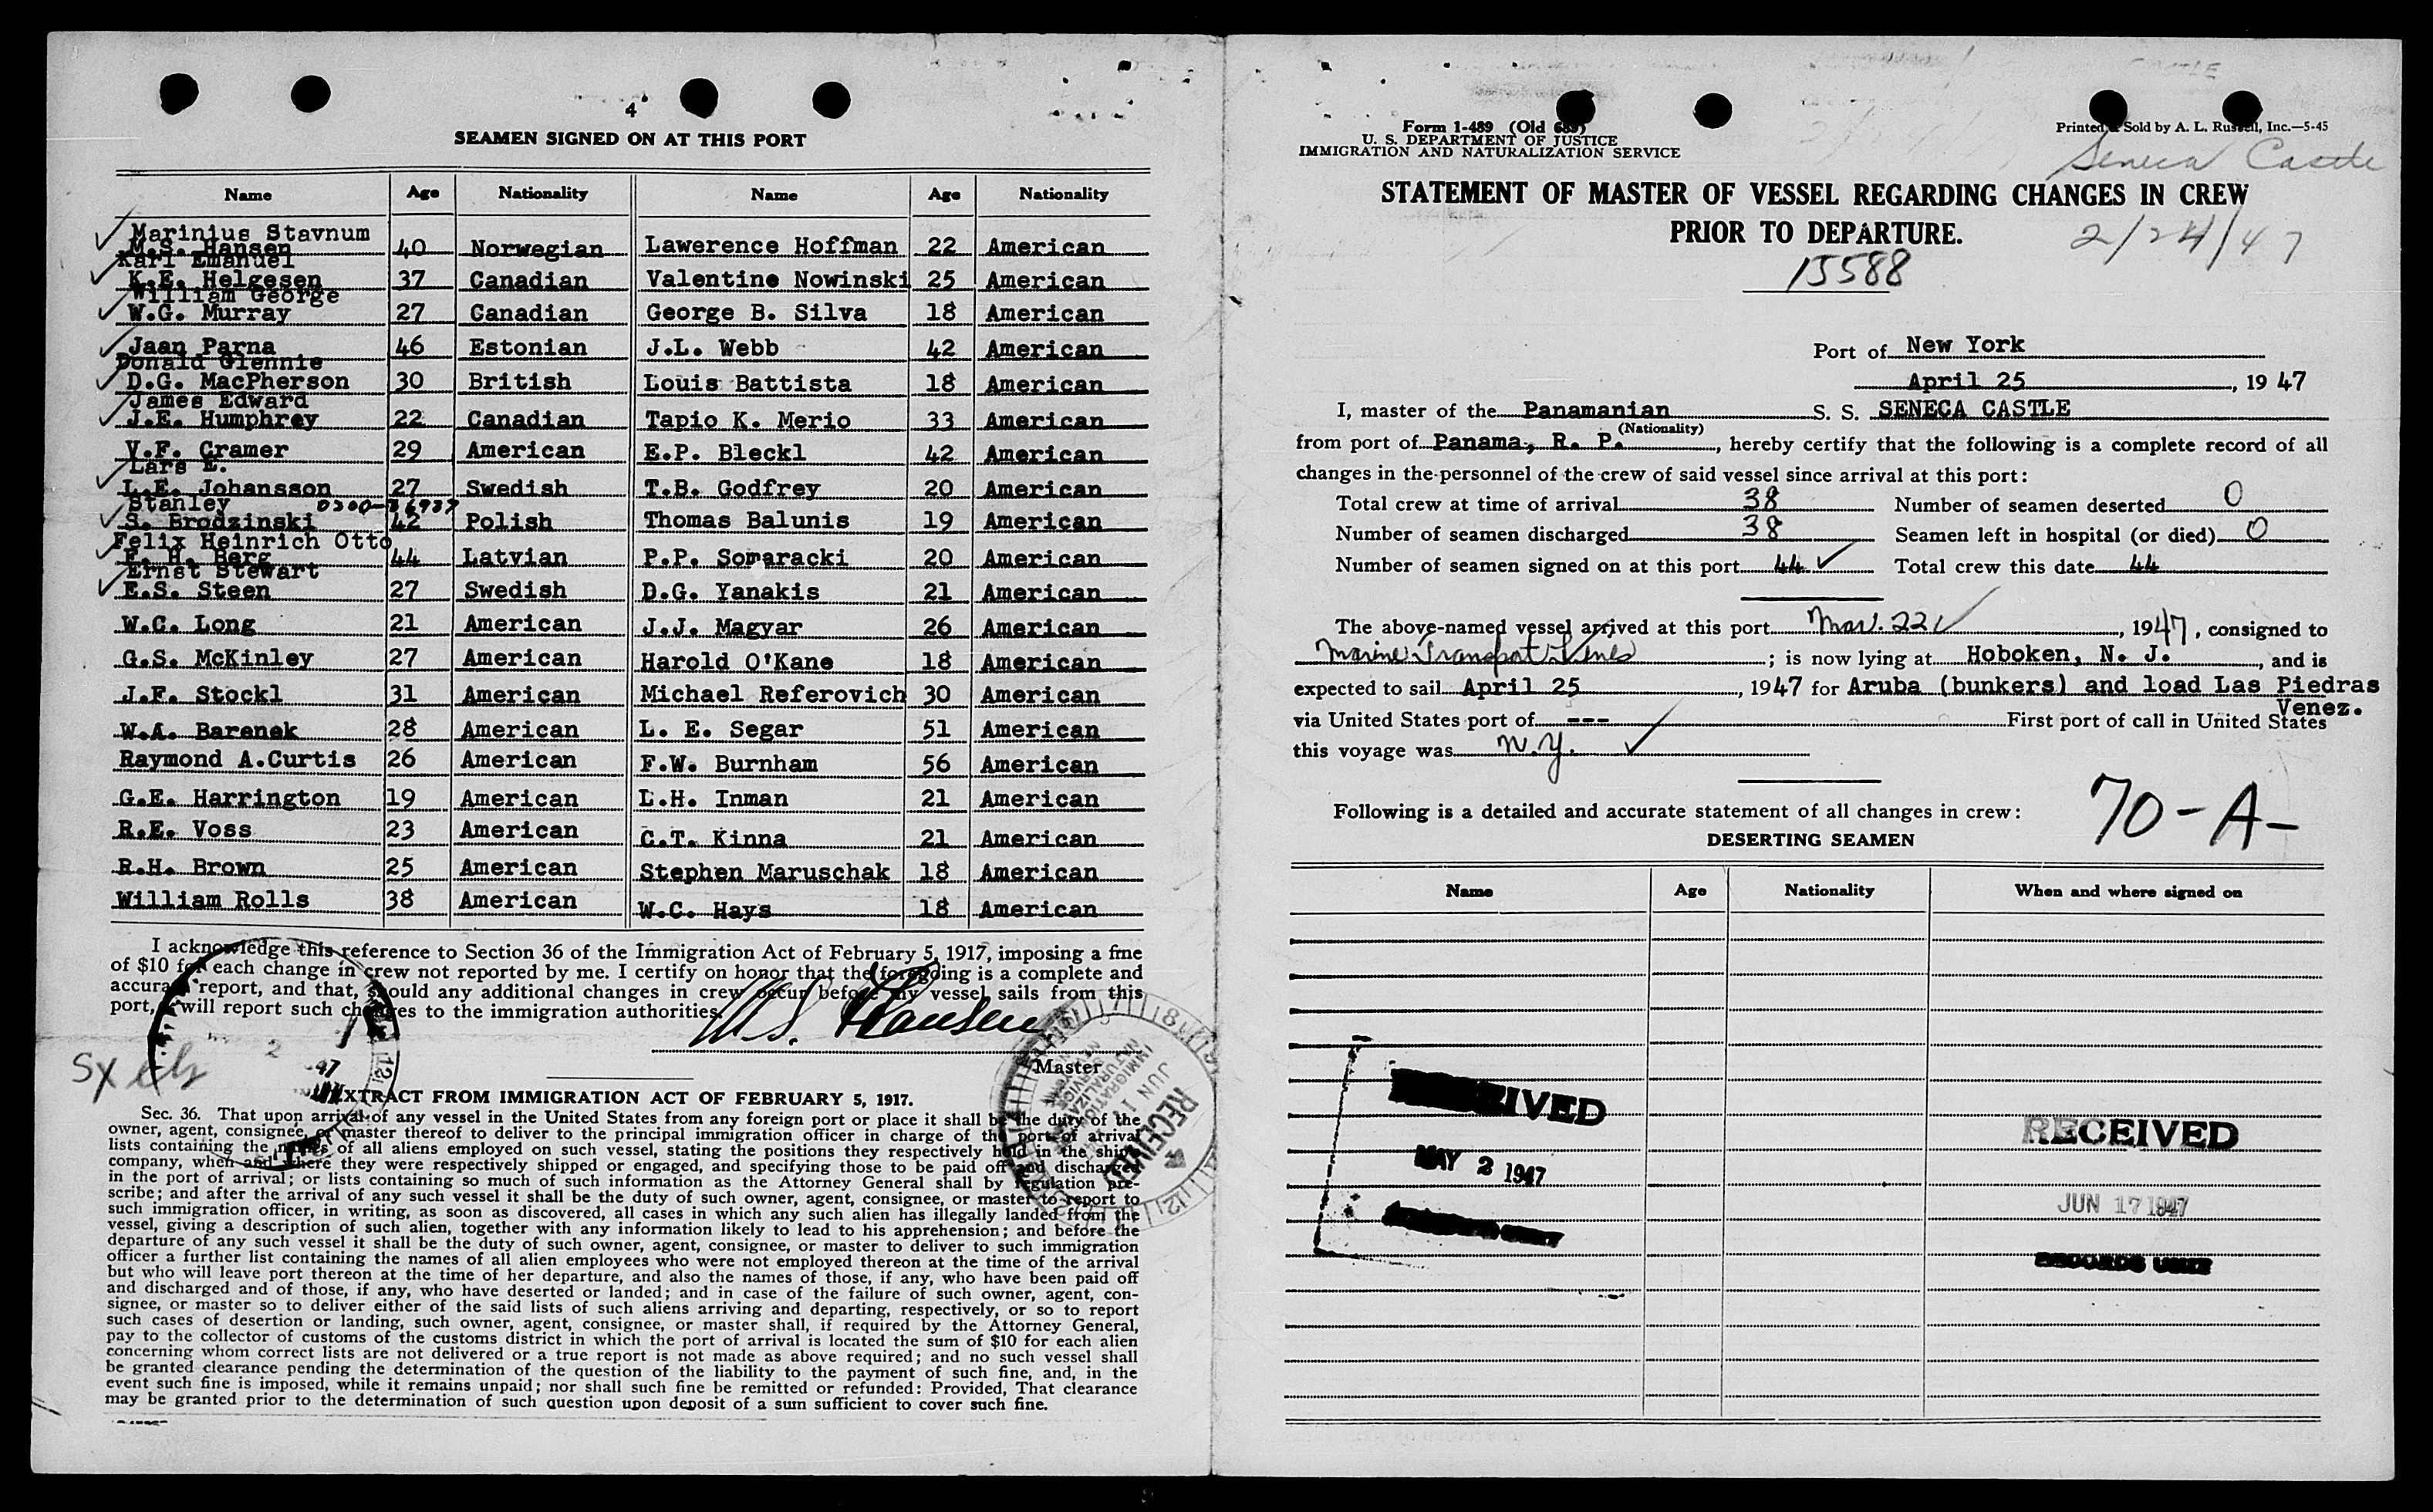 4
SEAMEN SIGNED ON AT THIS PORT
Name Age Nationality Name Age Nationality
Marinius Stavnum
M.S. Hansen 40 Norwegian Lawerence Hoffman 22 American
Karl Emanuel
K.E. Helgesen 37 Canadian Valentine Nowinski 25 American
William George
W.G. Murray 27 Canadian George B. Silva 18 American
Jaan Parna 46 Estonian J.L. Webb 42 American
Donald Glennie
D.G. MacPherson 30 British Louis Battista 18 American
James Edward
J.E. Humphrey 22 Canadian Tapio K. Merio 33 American
V.F. Cramer 29 American E.P. Bleckl 42 American
Lars E.
L.E. Johansson 27 Swedish T.B. Godfrey 20 American
Stanley
S. Brodzinski 42 Polish Thomas Balunis 19 American
Felix Heinrich Otto
F. H. Berg 44 Latvian P.P. Somaracki 20 American
Ernst Stewart
E.S. Steen 27 Swedish D.G. Yanakis 21 American
W.C. Long 21 American J.J. Magyar 26 American
G.S. McKinley 27 American Harold O'Kane 18 American
J.F. Stockl 31 American Michael Referovich 30 American
W.A. Barenek 28 American L. E. Segar 51 American
Raymond A.Curtis 26 American F.W. Burnham 56 American
G.E. Harrington 19 American L.H. Inman 21 American
R.E. Voss 23 American C.T. Kinna 21 American
R.H. Brown 25 American Stephen Maruschak 18 American
William Rolls 38 American W.C. Hays 18 American
I acknowledge this reference to Section 36 of the Immigration Act of February 5, 1917, imposing a fine
of $10 for each change in crew not reported by me. I certify on honor that the foregoing is a complete and
accurate report, and that, should any additional changes in crew occur before my vessel sails from this
port, I will report such changes to the immigration authorities.
M.S. Hansen
Master
RECEIVED
JUN 17
IMMIGRATION
EXTRACT FROM IMMIGRATION ACT OF FEBRUARY 5, 1917.
Sec. 36. That upon arrival of any vessel in the United States from any foreign port or place it shall be the duty of the
owner, agent, consignee, or master thereof to deliver to the principal immigration officer in charge of the port of arrival
lists containing the names of all aliens employed on such vessel, stating the positions they respectively hold in the ship's
company, when and where they were respectively shipped or engaged, and specifying those to be paid off and discharged
in the port of arrival; or lists containing so much of such information as the Attorney General shall by regulation pre-
scribe; and after the arrival of any such vessel it shall be the duty of such owner, agent, consignee, or master to report to
such immigration officer, in writing, as soon as discovered, all cases in which any such alien has illegally landed from the
vessel, giving a description of such alien, together with any information likely to lead to his apprehension; and before the
departure of any such vessel it shall be the duty of such owner, agent, consignee, or master to deliver to such immigration
officer a further list containing the names of all alien employees who were not employed thereon at the time of the arrival
but who will leave port thereon at the time of her departure, and also the names of those, if any, who have been paid off
and discharged and of those, if any, who have deserted or landed; and in case of the failure of such owner, agent, con-
signee, or master so to deliver either of the said lists of such aliens arriving and departing, respectively, or so to report
such cases of desertion or landing, such owner, agent, consignee, or master shall, if required by the Attorney General,
pay to the collector of customs of the customs district in which the port of arrival is located the sum of $10 for each alien
concerning whom correct lists are not delivered or a true report is not made as above required; and no such vessel shall
be granted clearance pending the determination of the question of the liability to the payment of such fine, and, in the
event such fine is imposed, while it remains unpaid; nor shall such fine be remitted or refunded: Provided, That clearance
may be granted prior to the determination of such question upon deposit of a sum sufficient to cover such fine.
Form I-489 (Old 689)
U. S. DEPARTMENT OF JUSTICE
IMMIGRATION AND NATURALIZATION SERVICE
Printed & Sold by A. L. Russell, Inc.—5-45
Seneca Castle
STATEMENT OF MASTER OF VESSEL REGARDING CHANGES IN CREW
PRIOR TO DEPARTURE.
2/24/47
15588
Port of New York
April 25, 1947
I, master of the Panamanian S. S. SENECA CASTLE
(Nationality)
from port of Panama, R. P., hereby certify that the following is a complete record of all
changes in the personnel of the crew of said vessel since arrival at this port:
Total crew at time of arrival 38 Number of seamen deserted 0
Number of seamen discharged 38 Seamen left in hospital (or died) 0
Number of seamen signed on at this port 44 ✓ Total crew this date 44
The above-named vessel arrived at this port Mar. 22 ✓, 1947, consigned to
Marine Transport Lines; is now lying at Hoboken, N. J., and is
expected to sail April 25, 1947 for Aruba (bunkers) and load Las Piedras
Venez.
via United States port of --- First port of call in United States
this voyage was N.Y. ✓
70-A-
Following is a detailed and accurate statement of all changes in crew:
DESERTING SEAMEN
Name Age Nationality When and where signed on
RECEIVED
MAY 2 1947
RECEIVED
JUN 17 1947
RECORDS UNIT